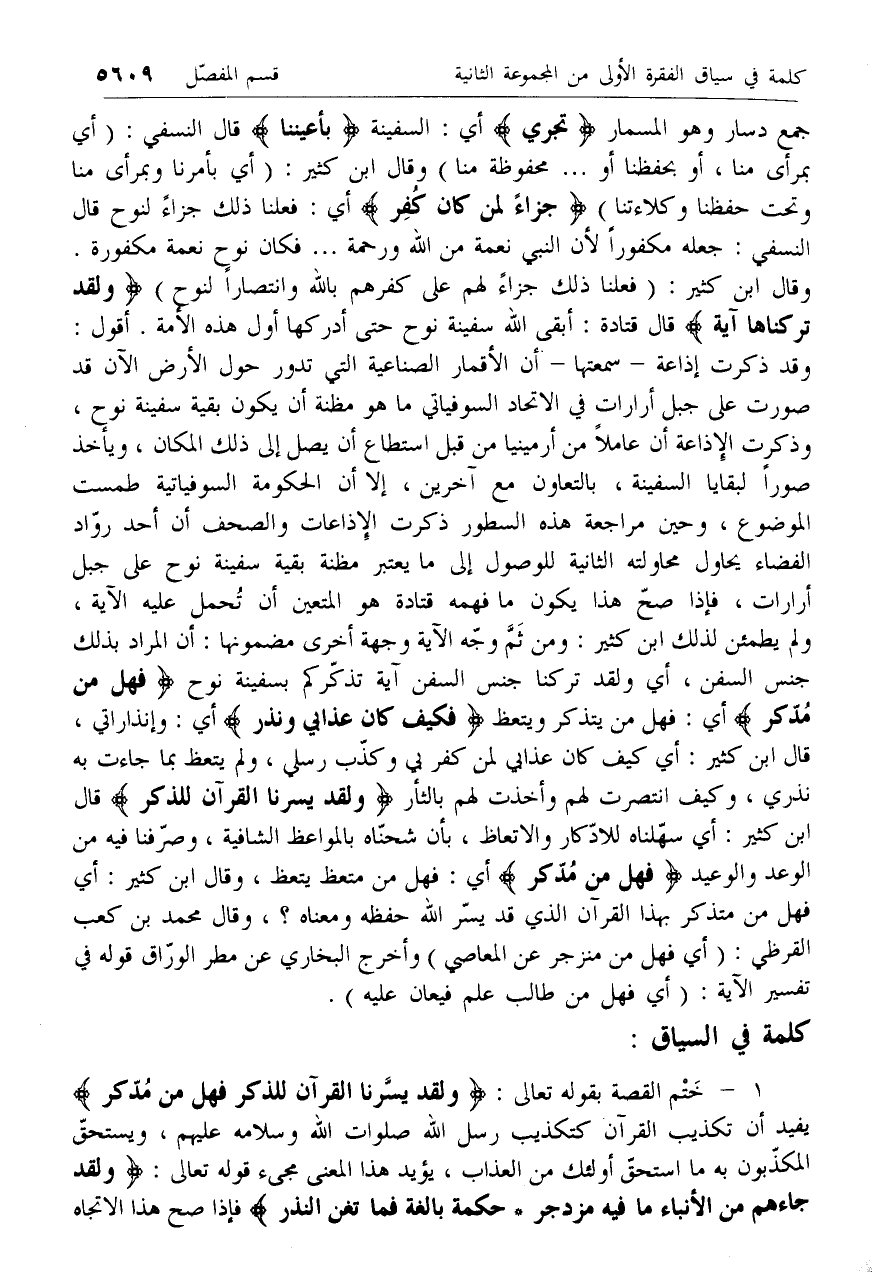 كلمة في سياق الفقرة الأولى من المجموعة الثانية قسم المفصّل ٥٦٠٩
جمع دسار وهو المسمار ﴿ تجري ﴾ أي : السفينة ﴿ بأعيننا ﴾ قال النسفي : ( أي
بمرأى منا ، أو بحفظنا أو ... محفوظة منا ) وقال ابن كثير : ( أي بأمرنا وبمرأى منا
وتحت حفظنا وكلاءتنا ) ﴿ جزاءً لمن كان كُفِر ﴾ أي : فعلنا ذلك جزاءً لنوح قال
النسفي : جعله مكفوراً لأن النبي نعمة من الله ورحمة ... فكان نوح نعمة مكفورة .
وقال ابن كثير : ( فعلنا ذلك جزاءً لهم على كفرهم بالله وانتصاراً لنوح ) ﴿ ولقد
تركناها آية ﴾ قال قتادة : أبقى الله سفينة نوح حتى أدركها أول هذه الأمة . أقول :
وقد ذكرت إذاعة – سمعتها – أن الأقمار الصناعية التي تدور حول الأرض الآن قد
صورت على جبل أرارات في الاتحاد السوفياتي ما هو مظنة أن يكون بقية سفينة نوح ،
وذكرت الإذاعة أن عاملاً من أرمينيا من قبل استطاع أن يصل إلى ذلك المكان ، ويأخذ
صوراً لبقايا السفينة ، بالتعاون مع آخرين ، إلا أن الحكومة السوفياتية طمست
الموضوع ، وحين مراجعة هذه السطور ذكرت الإذاعات والصحف أن أحد روّاد
الفضاء يحاول محاولته الثانية للوصول إلى ما يعتبر مظنة بقية سفينة نوح على جبل
أرارات ، فإذا صحّ هذا يكون ما فهمه قتادة هو المتعين أن تُحمل عليه الآية ،
ولم يطمئن لذلك ابن كثير : ومن ثَمَّ وجّه الآية وجهة أخرى مضمونها : أن المراد بذلك
جنس السفن ، أي ولقد تركنا جنس السفن آية تذكّركم بسفينة نوح ﴿ فهل من
مُدّكر ﴾ أي : فهل من يتذكر ويتعظ ﴿ فكيف كان عذابي ونذر ﴾ أي : وإنذاراتي ،
قال ابن كثير : أي كيف كان عذابي لمن كفر بي وكذّب رسلي ، ولم يتعظ بما جاءت به
نذري ، وكيف انتصرت لهم وأخذت لهم بالثأر ﴿ ولقد يسرنا القرآن للذكر ﴾ قال
ابن كثير : أي سهّلناه للادّكار والاتعاظ ، بأن شحنّاه بالمواعظ الشافية ، وصرّفنا فيه من
الوعد والوعيد ﴿ فهل من مُدّكر ﴾ أي : فهل من متعظ يتعظ ، وقال ابن كثير : أي
فهل من متذكر بهذا القرآن الذي قد يسّر الله حفظه ومعناه ؟ ، وقال محمد بن كعب
القرظي : ( أي فهل من منزجر عن المعاصي ) وأخرج البخاري عن مطر الورّاق قوله في
تفسير الآية : ( أي فهل من طالب علم فيعان عليه ) .
كلمة في السياق :
١ – خَتْم القصة بقوله تعالى : ﴿ ولقد يسَّرنا القرآن للذكر فهل من مُدّكر ﴾
يفيد أن تكذيب القرآن كتكذيب رسل الله صلوات الله وسلامه عليهم ، ويستحقّ
المكذّبون به ما استحقّ أولئك من العذاب ، يؤيد هذا المعنى مجيء قوله تعالى : ﴿ ولقد
جاءهم من الأنباء ما فيه مزدجر * حكمة بالغة فما تغن النذر ﴾ فإذا صح هذا الاتجاه